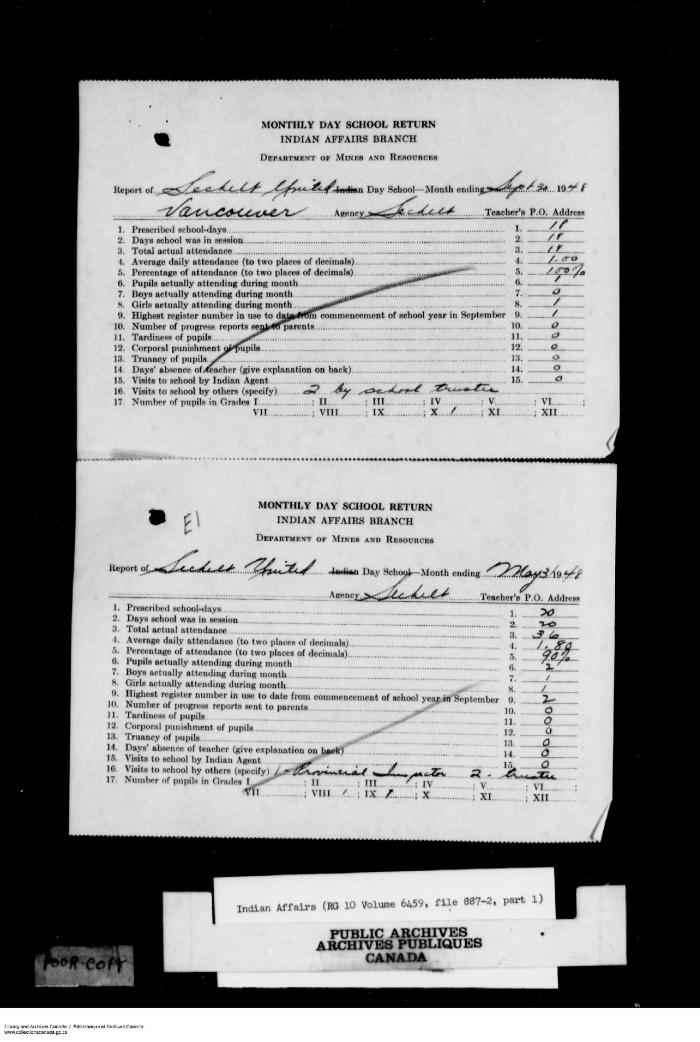 MONTHLY DAY SCHOOL RETURN
INDIAN AFFAIRS BRANCH
DEPARTMENT OF MINES AND RESOURCES
Report of Sechelt United Indian Day School—Month ending Sept 30 1948
Vancouver Agency Sechelt Teacher's P.O. Address
1. Prescribed school-days 1. 18
2. Days school was in session 2. 18
3. Total actual attendance 3. 18
4. Average daily attendance (to two places of decimals) 4. 1.00
5. Percentage of attendance (to two places of decimals) 5. 100%
6. Pupils actually attending during month 6. 1
7. Boys actually attending during month 7. 0
8. Girls actually attending during month 8. 1
9. Highest register number in use to date from commencement of school year in September 9. 1
10. Number of progress reports sent to parents 10. 0
11. Tardiness of pupils 11. 0
12. Corporal punishment of pupils 12. 0
13. Truancy of pupils 13. 0
14. Days' absence of teacher (give explanation on back) 14. 0
15. Visits to school by Indian Agent 15. 0
16. Visits to school by others (specify) 2 by school trustee
17. Number of pupils in Grades I ; II ; III ; IV ; V ; VI ;
VII ; VIII ; IX ; X 1 ; XI ; XII
E1
MONTHLY DAY SCHOOL RETURN
INDIAN AFFAIRS BRANCH
DEPARTMENT OF MINES AND RESOURCES
Report of Sechelt United Indian Day School—Month ending May 31 1948
Agency Sechelt Teacher's P.O. Address
1. Prescribed school-days 1. 20
2. Days school was in session 2. 20
3. Total actual attendance 3. 36
4. Average daily attendance (to two places of decimals) 4. 1.80
5. Percentage of attendance (to two places of decimals) 5. 90%
6. Pupils actually attending during month 6. 2
7. Boys actually attending during month 7. 1
8. Girls actually attending during month 8. 1
9. Highest register number in use to date from commencement of school year in September 9. 2
10. Number of progress reports sent to parents 10. 0
11. Tardiness of pupils 11. 0
12. Corporal punishment of pupils 12. 0
13. Truancy of pupils 13. 0
14. Days' absence of teacher (give explanation on back) 14. 0
15. Visits to school by Indian Agent 15. 0
16. Visits to school by others (specify) 1- Provincial Inspector 2- trustee
17. Number of pupils in Grades I ; II ; III ; IV ; V ; VI ;
VII ; VIII 1 ; IX 1 ; X ; XI ; XII
Indian Affairs (RG 10 Volume 6459, file 887-2, part 1)
PUBLIC ARCHIVES
ARCHIVES PUBLIQUES
CANADA
POOR COPY
Library and Archives Canada / Bibliothèque et Archives Canada
www.collectionscanada.gc.ca